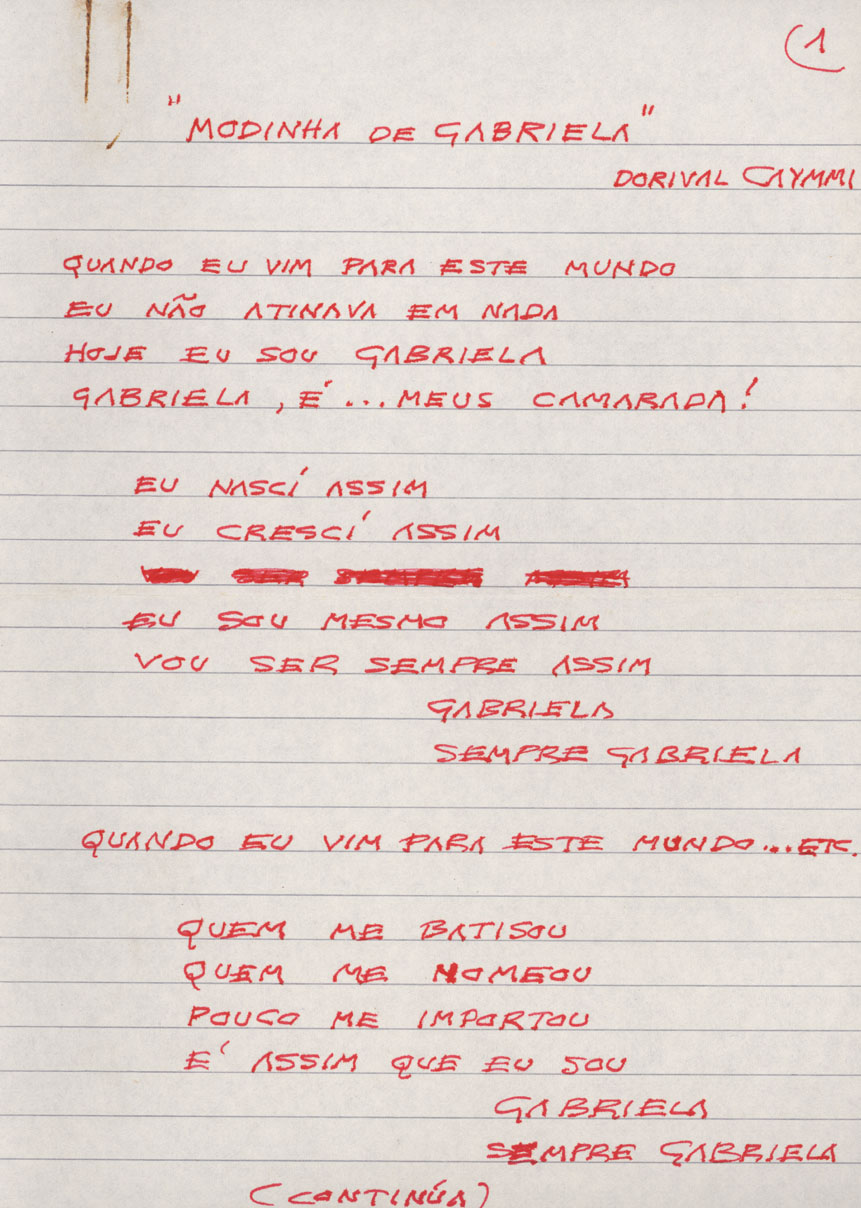 1
"MODINHA DE GABRIELA"
DORIVAL CAYMMI
QUANDO EU VIM PARA ESTE MUNDO
EU NÃO ATINAVA EM NADA
HOJE EU SOU GABRIELA
GABRIELA, É... MEUS CAMARADA!
EU NASCÍ ASSIM
EU CRESCÍ ASSIM
EU SOU MESMO ASSIM
VOU SER SEMPRE ASSIM
GABRIELA
SEMPRE GABRIELA
QUANDO EU VIM PARA ESTE MUNDO...ETC.
QUEM ME BATISOU
QUEM ME NOMEOU
POUCO ME IMPORTOU
É ASSIM QUE EU SOU
GABRIELA
SEMPRE GABRIELA
(CONTINÚA)